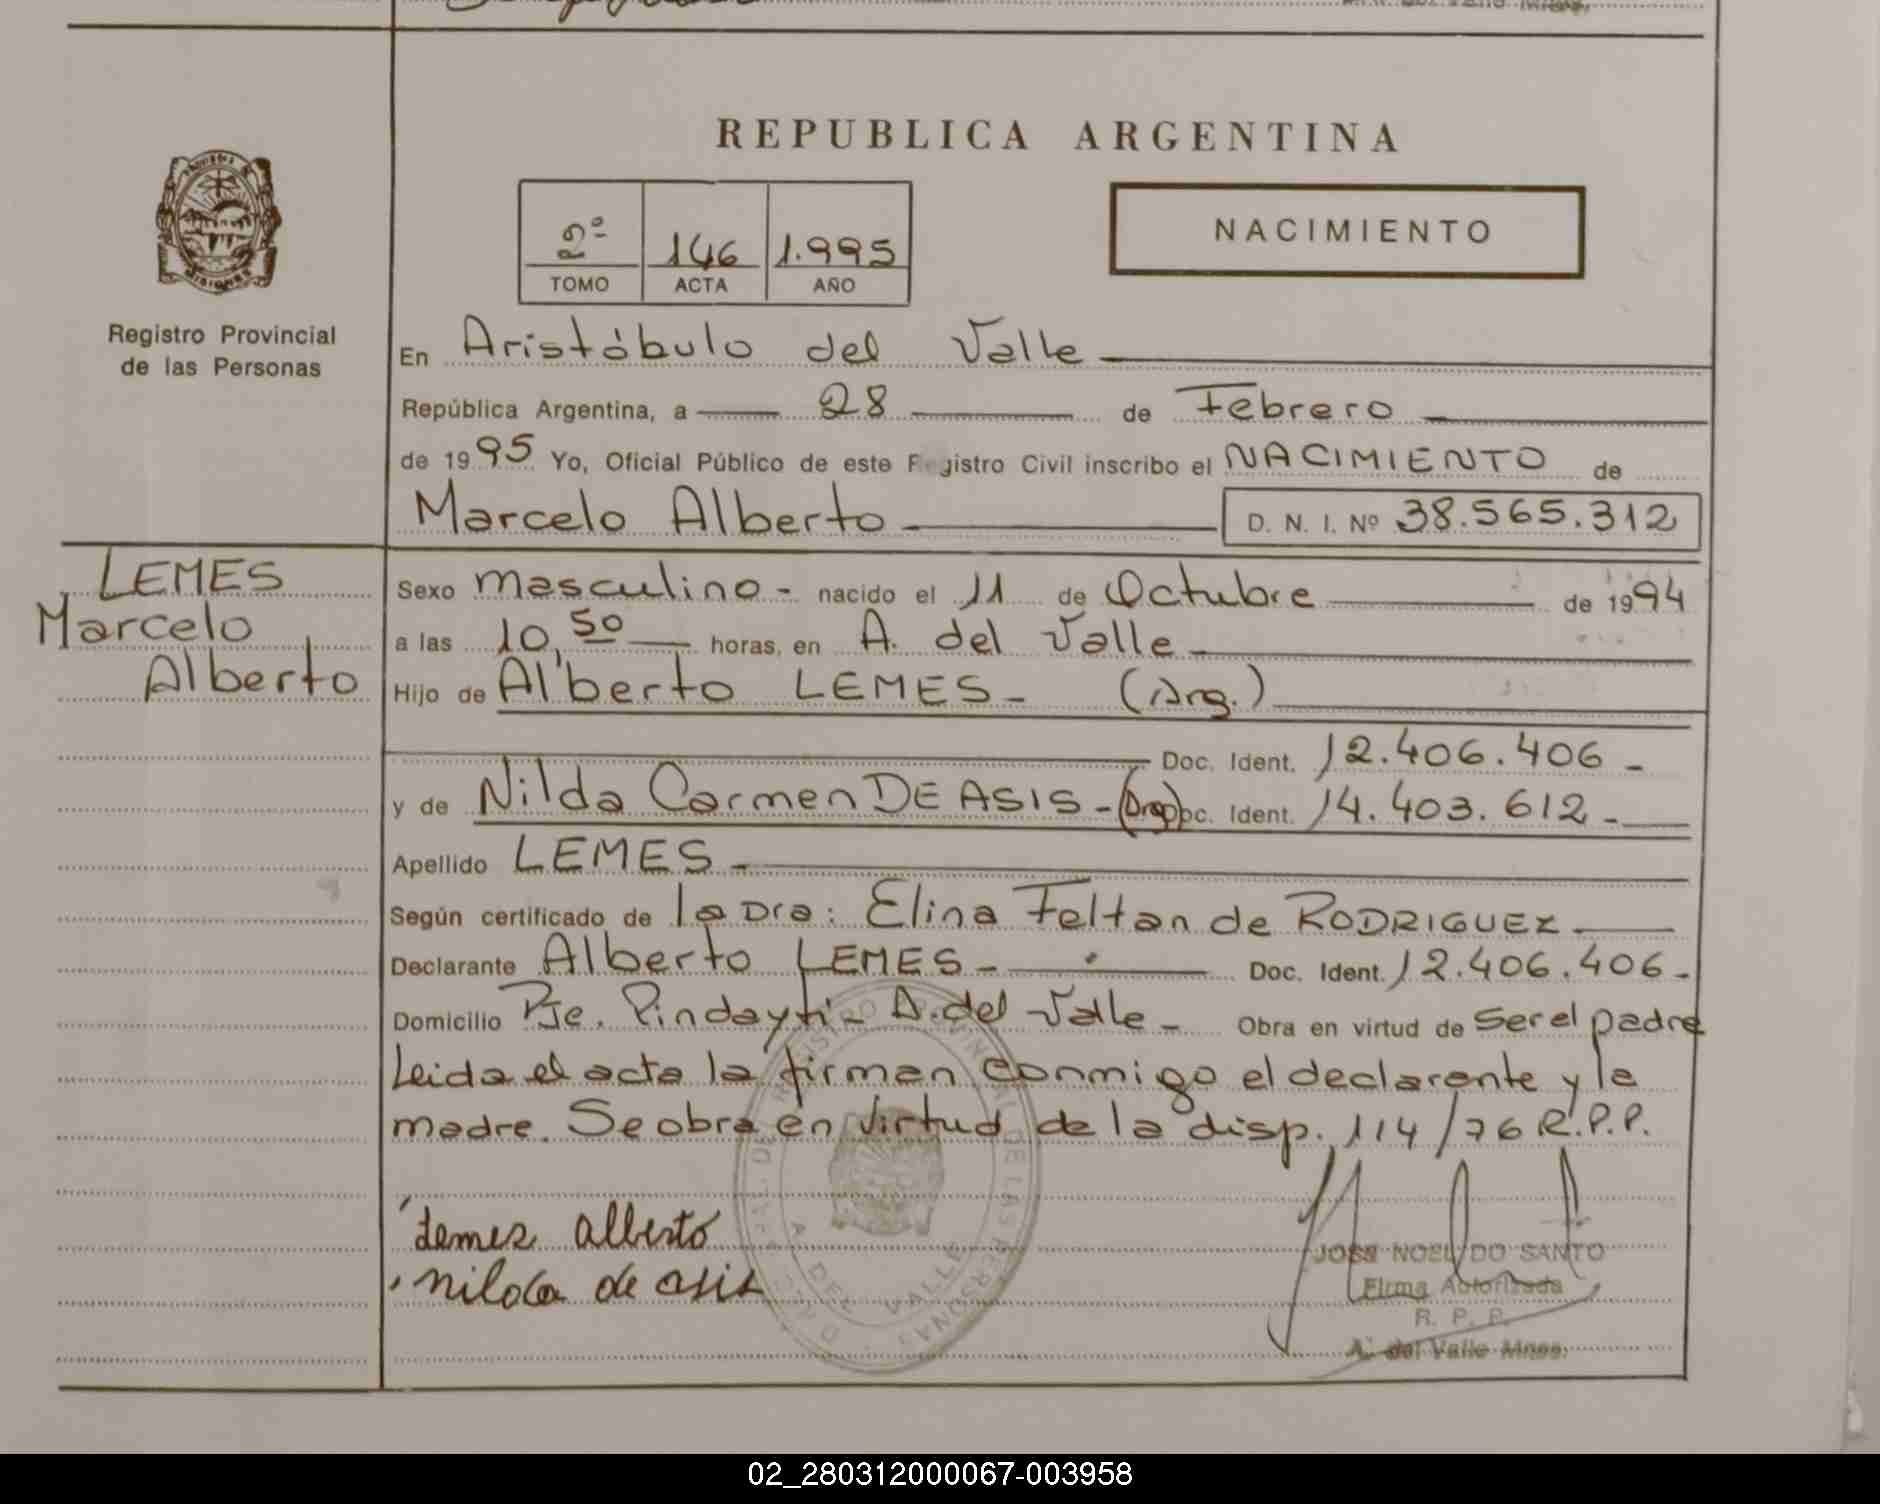 REPUBLICA ARGENTINA
2º 146 1.995
TOMO ACTA AÑO
NACIMIENTO
Registro Provincial
de las Personas
En Aristóbulo del Valle
República Argentina, a 28 de Febrero
de 1995 Yo, Oficial Público de este Registro Civil inscribo el NACIMIENTO de
Marcelo Alberto D. N. I. Nº 38.565.312
LEMES
Marcelo
Alberto
Sexo masculino - nacido el 11 de Octubre de 1994
a las 10,50 horas, en A. del Valle
Hijo de Alberto LEMES - (Arg.)
Doc. Ident. 12.406.406 -
y de Nilda Carmen DE ASIS - (Arg) Doc. Ident. 14.403.612 -
Apellido LEMES -
Según certificado de la Dra: Elina Feltan de RODRIGUEZ
Declarante Alberto LEMES - Doc. Ident. 12.406.406 -
Domicilio Pje. Pindayti - A. del Valle - Obra en virtud de ser el padre
Leida el acta la firman conmigo el declarante y la
madre. Se obra en virtud de la disp. 114/76 R.P.P.
Lemes Alberto
nilda de asis
A DEL VALLE
JOSE NOEL DO SANTO
Firma Autorizada
R. P. P.
A. del Valle Mnes.
02_280312000067-003958